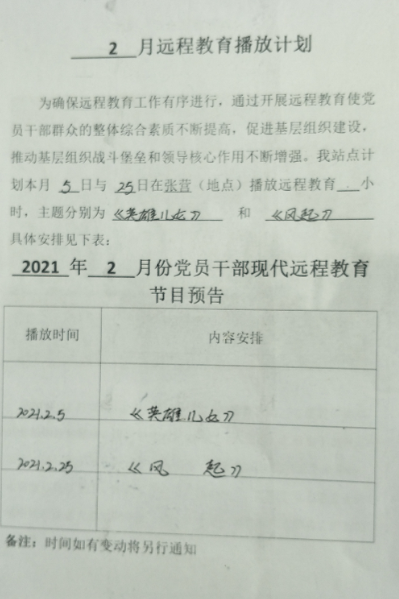 2 月远程教育播放计划
为确保远程教育工作有序进行，通过开展远程教育使党
员干部群众的整体综合素质不断提高，促进基层组织建设，
推动基层组织战斗堡垒和领导核心作用不断增强。我站点计
划本月 5 日与 25日在张营（地点）播放远程教育 小
时，主题分别为 《英雄儿女》 和 《风起》
具体安排见下表：
2021 年 2 月份党员干部现代远程教育
节目预告
播放时间 内容安排
2021.2.5 《英雄儿女》
2021.2.25 《风 起》
备注：时间如有变动将另行通知